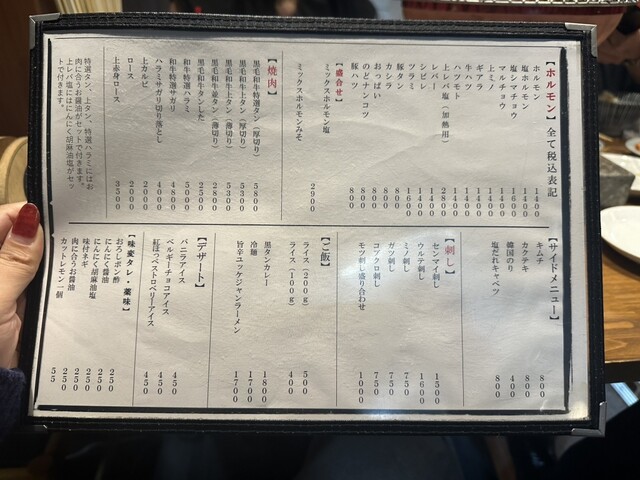 【ホルモン】全て税込表記
ホルモン 1400
塩ホルモン 1400
塩シマチョウ 1600
マルチョウ 1400
上ミノ 1400
ギアラ 1400
牛ハツ 1400
ハツモト 1400
上レバ塩(加熱用) 2800
レバー 1400
シビレ 1400
ツラミ 1600
豚タン 800
カシラ 800
おっぱい 800
のどナンコツ 800
豚ハツ 800
【盛合せ】
ミックスホルモン塩
ミックスホルモンみそ 2900
【焼肉】
黒毛和牛特選タン(厚切り) 5800
黒毛和牛上タン(厚切り) 5300
黒毛和牛上タン(薄切り) 5300
黒毛和牛並タン(薄切り) 2800
黒毛和牛タンした 2500
和牛特選ハラミ 5000
和牛特選サガリ 4800
ハラミサガリ切り落とし 4000
上カルビ 2000
ロース 2000
上赤身ロース 3500
特選タン、上タン、特選ハラミにはお
肉に合うお醤油がセットで付きます。
上レバ塩にはにんにく胡麻油塩がセッ
トで付きます。
【サイドメニュー】
キムチ 800
カクテキ 800
韓国のり 400
塩だれキャベツ 800
【刺し】
センマイ刺し 1500
ウルテ刺し 1600
ミノ刺し 750
ガツ刺し 750
コブクロ刺し 750
モツ刺し盛り合わせ 1000
【ご飯】
ライス(200g) 500
ライス(100g) 400
黒タンカレー 1800
冷麺 1700
旨辛ユッケジャンラーメン 1700
【デザート】
バニラアイス 450
ベルギーチョコアイス 450
紅ほっぺストロベリーアイス 450
【味変タレ・薬味】
おろしポン酢 250
にんにく醤油 250
にんにく胡麻油塩 250
味付ネギ 250
肉に合うお醤油 250
カットレモン一個 55